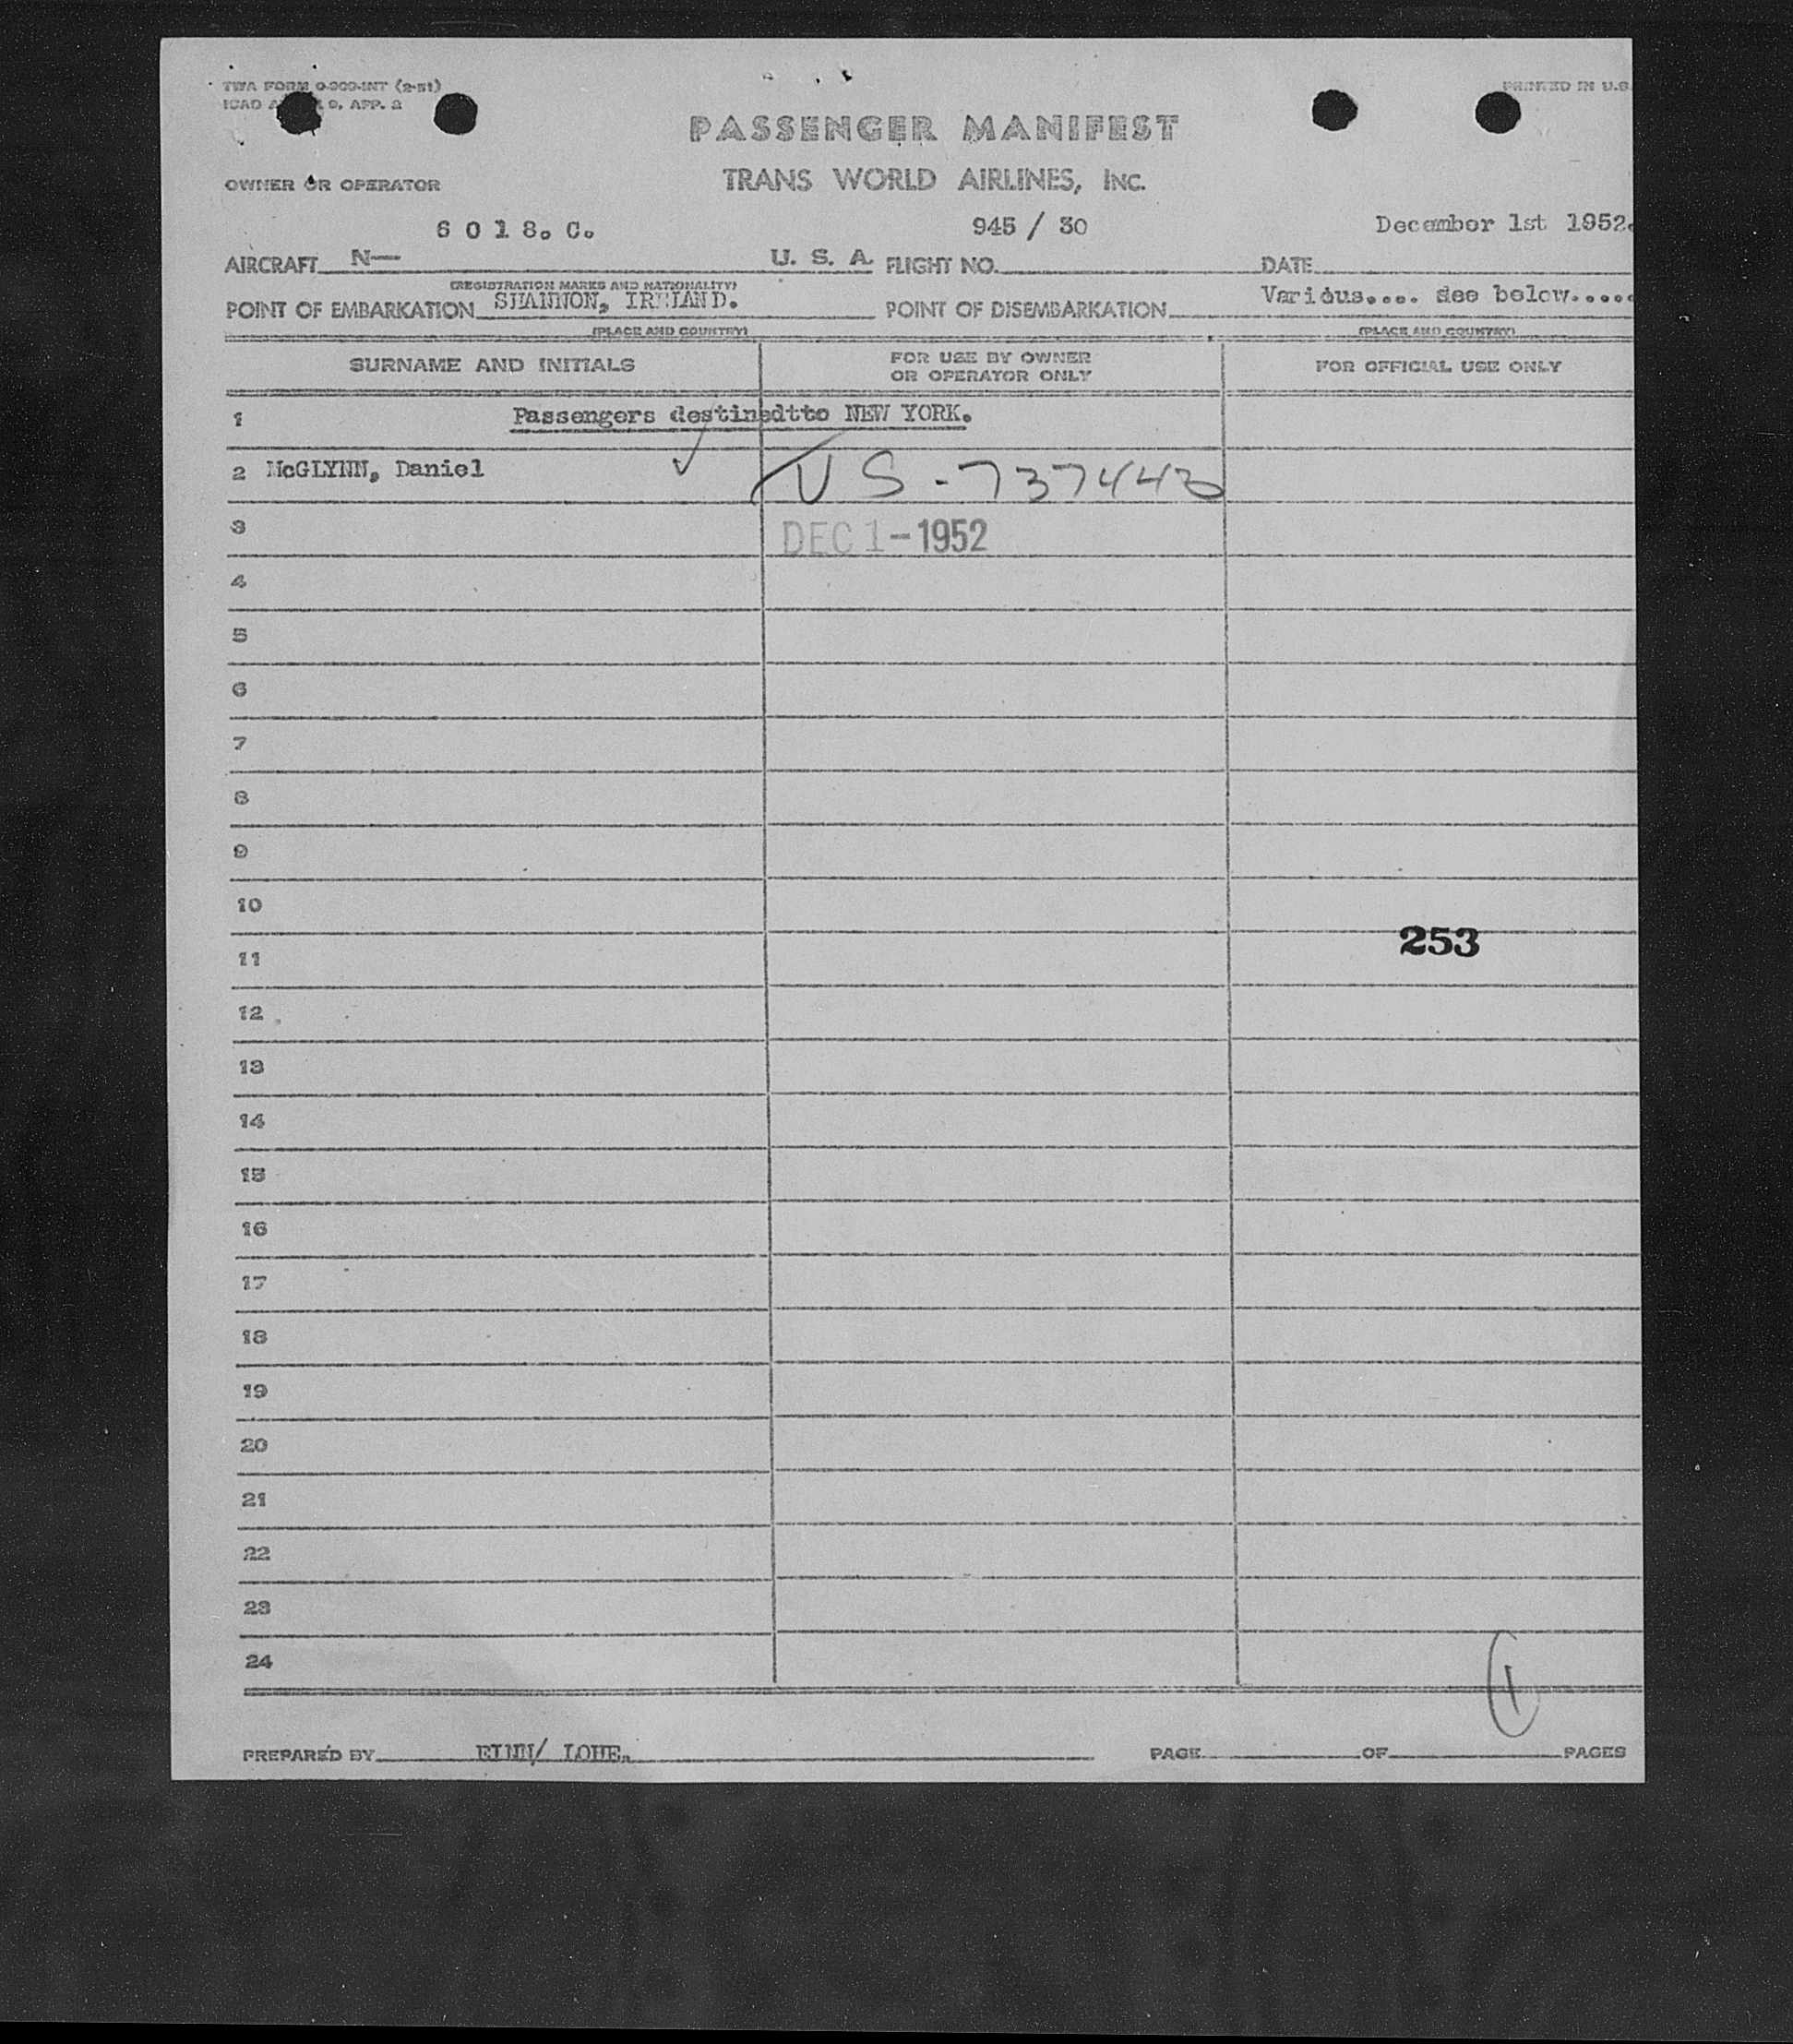 TWA FORM 0-300-INT (2-51)
PRINTED IN U.S.
ICAO 9, APP. 2
PASSENGER MANIFEST
OWNER OR OPERATOR TRANS WORLD AIRLINES, INC.
6 0 1 8. C. 945 / 30 December 1st 1952.
AIRCRAFT N— U. S. A. FLIGHT NO. DATE
(REGISTRATION MARKS AND NATIONALITY)
POINT OF EMBARKATION SHANNON, IRELAND. POINT OF DISEMBARKATION Various.... See below.....
(PLACE AND COUNTRY) (PLACE AND COUNTRY)
SURNAME AND INITIALS FOR USE BY OWNER OR OPERATOR ONLY FOR OFFICIAL USE ONLY
1 Passengers destinedtto NEW YORK.
2 McGLYNN, Daniel ✓ US-737443
3 DEC 1-1952
4
5
6
7
8
9
10
253
11
12
13
14
15
16
17
18
19
20
21
22
23
24
1
PREPARED BY LOHE. PAGE OF PAGES